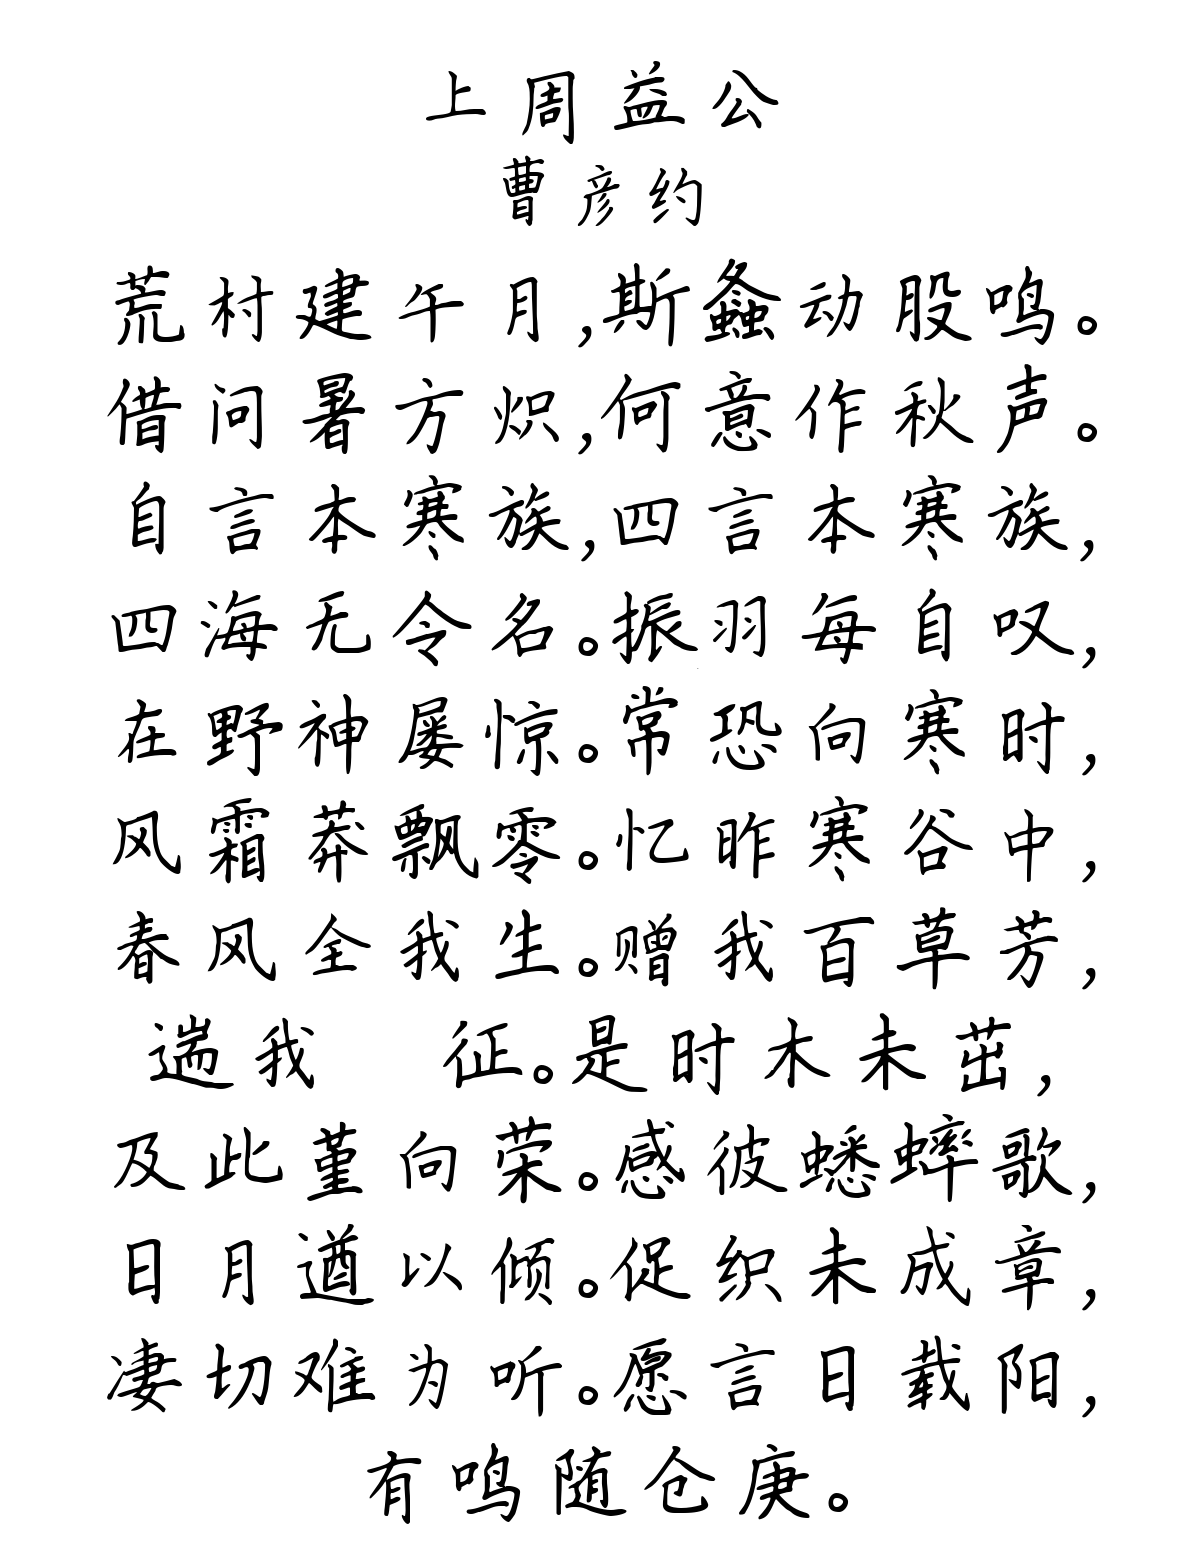 上周益公
曹彦约
荒村建午月,斯螽动股鸣。
借问暑方炽,何意作秋声。
自言本寒族,四言本寒族,
四海无令名。振羽每自叹,
在野神屡惊。常恐向寒时,
风霜莽飘零。忆昨寒谷中,
春风全我生。赠我百草芳,
遄我 征。是时木未茁,
及此堇向荣。感彼蟋蟀歌,
日月遒以倾。促织未成章,
凄切难为听。愿言日载阳,
有鸣随仓庚。